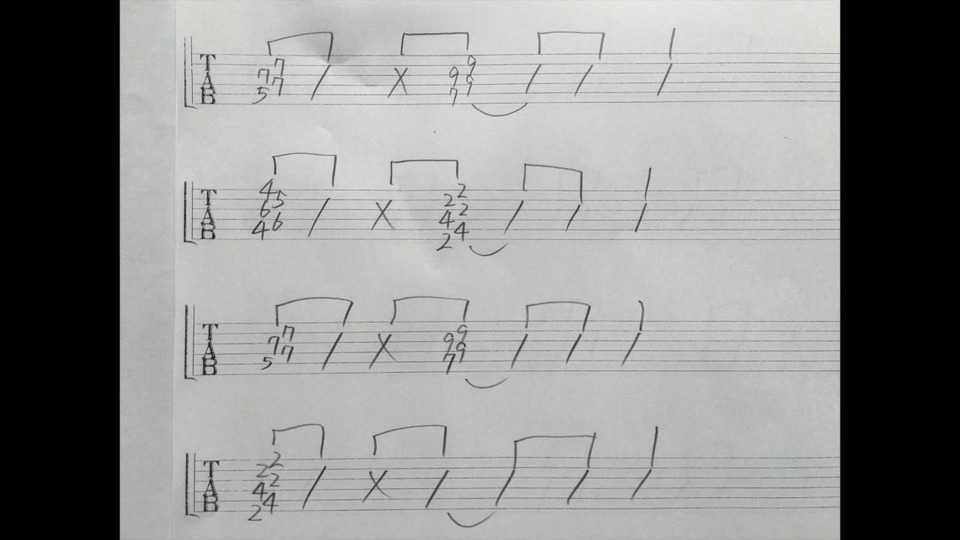 TAB 7 7 7 5 / X 9 9 9 7 / / /
TAB 4 5 6 6 4 / X 2 2 2 4 4 2 / / /
TAB 7 7 7 5 / X 9 9 9 7 / / /
TAB 2 2 2 4 4 2 / X / / / /